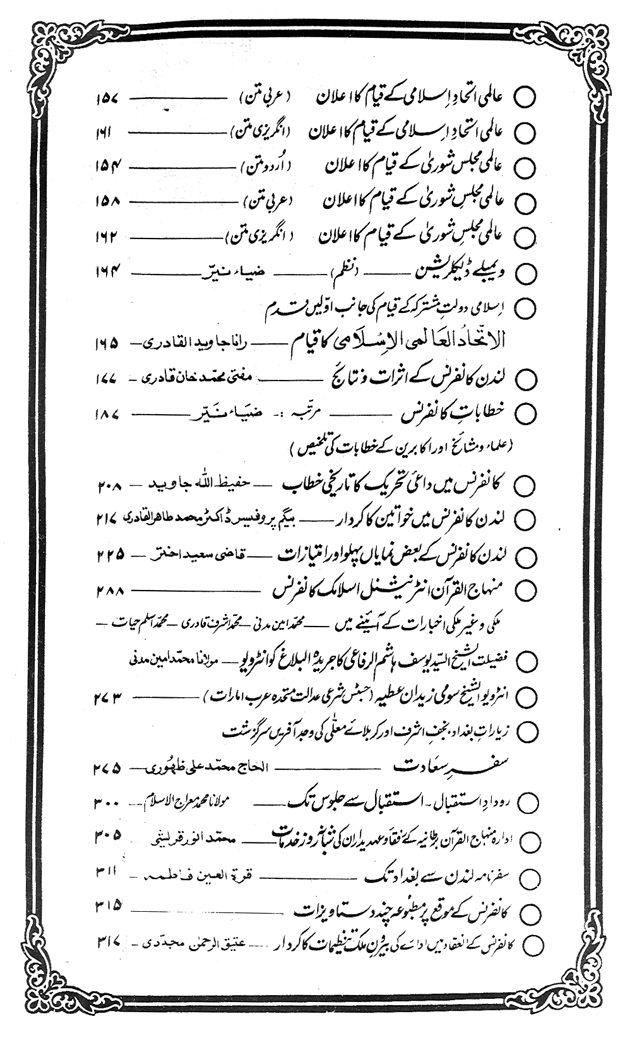 ○ عالمی اتحادِ اسلامی کے قیام کا اعلان (عربی متن) ——— ۱۵۷
○ عالمی اتحادِ اسلامی کے قیام کا اعلان (انگریزی متن) ——— ۱۶۱
○ عالمی مجلس شوریٰ کے قیام کا اعلان (اُردو متن) ——— ۱۵۴
○ عالمی مجلسِ شوریٰ کے قیام کا اعلان (عربی متن) ——— ۱۵۸
○ عالمی مجلسِ شوریٰ کے قیام کا اعلان (انگریزی متن) ——— ۱۶۲
○ ویمبلے ڈیکلریشن ——— (نظم) — ضیاء نیّر ——— ۱۶۴
○ اسلامی دولتِ مشترکہ کے قیام کی جانب اوّلیں قدم
الاتحاد العالمی الاسلامی کا قیام —— رانا جاوید القادری — ۱۶۵
○ لندن کانفرنس کے اثرات و نتائج ——— مفتی محمد خان قادری — ۱۷۷
○ خطاباتِ کانفرنس ——— مرتبہ :- ضیاء نیّر ——— ۱۸۷
(علماء و مشائخ اور اکابرین کے خطابات کی تلخیص)
○ کانفرنس میں داعئ تحریک کا تاریخی خطاب — حفیظ اللہ جاوید — ۲۰۸
○ لندن کانفرنس میں خواتین کا کردار —— بیگم پروفیسر ڈاکٹر محمد طاہر القادری ۲۱۷
○ لندن کانفرنس کے بعض نمایاں پہلو اور امتیازات — قاضی سعید اختر — ۲۲۵
○ منہاج القرآن انٹرنیشنل اسلامک کانفرنس ——— ۲۸۸
ملکی و غیر ملکی اخبارات کے آئینے میں —— محمد امین مدنی — محمد اشرف قادری — محمد اسلم حیات —
○ فضیلت الشیخ السید یوسف ہاشم الرفاعی کا جریدہ البلاغ کو انٹرویو — مولانا محمد امین مدنی
○ انٹرویو الشیخ سومی زیدان عطیہ (جسٹس شرعی عدالت متحدہ عرب امارات) ——— ۲۷۳
○ زیاراتِ بغداد، نجفِ اشرف اور کربلائے معلّٰی کی وجد آفریں سرگزشت
سفرِ سعادت ——— الحاج محمد علی ظہوری — ۲۷۵
○ رودادِ استقبال - استقبال سے جلوس تک —— مولانا محمد معراج الاسلام — ۳۰۰
○ ادارہ منہاج القرآن برطانیہ کے رفقاء و عہدیداران کی شبانہ روز خدمات — محمد انور قریشی — ۳۰۵
○ سفرنامہ لندن سے بغداد تک ——— قرۃ العین فاطمہ — ۳۱۱
○ کانفرنس کے موقع پر مطبوعہ چند دستاویزات ——— ۳۱۵
○ کانفرنس کے انعقاد میں ادارے کی بیرونِ ملک تنظیمات کا کردار —— عتیق الرحمٰن مجددی — ۳۱۷